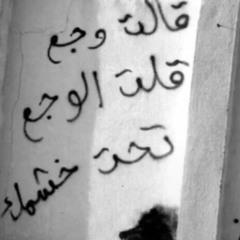 قالت وجع
قلت الوجع
تحت خشمك